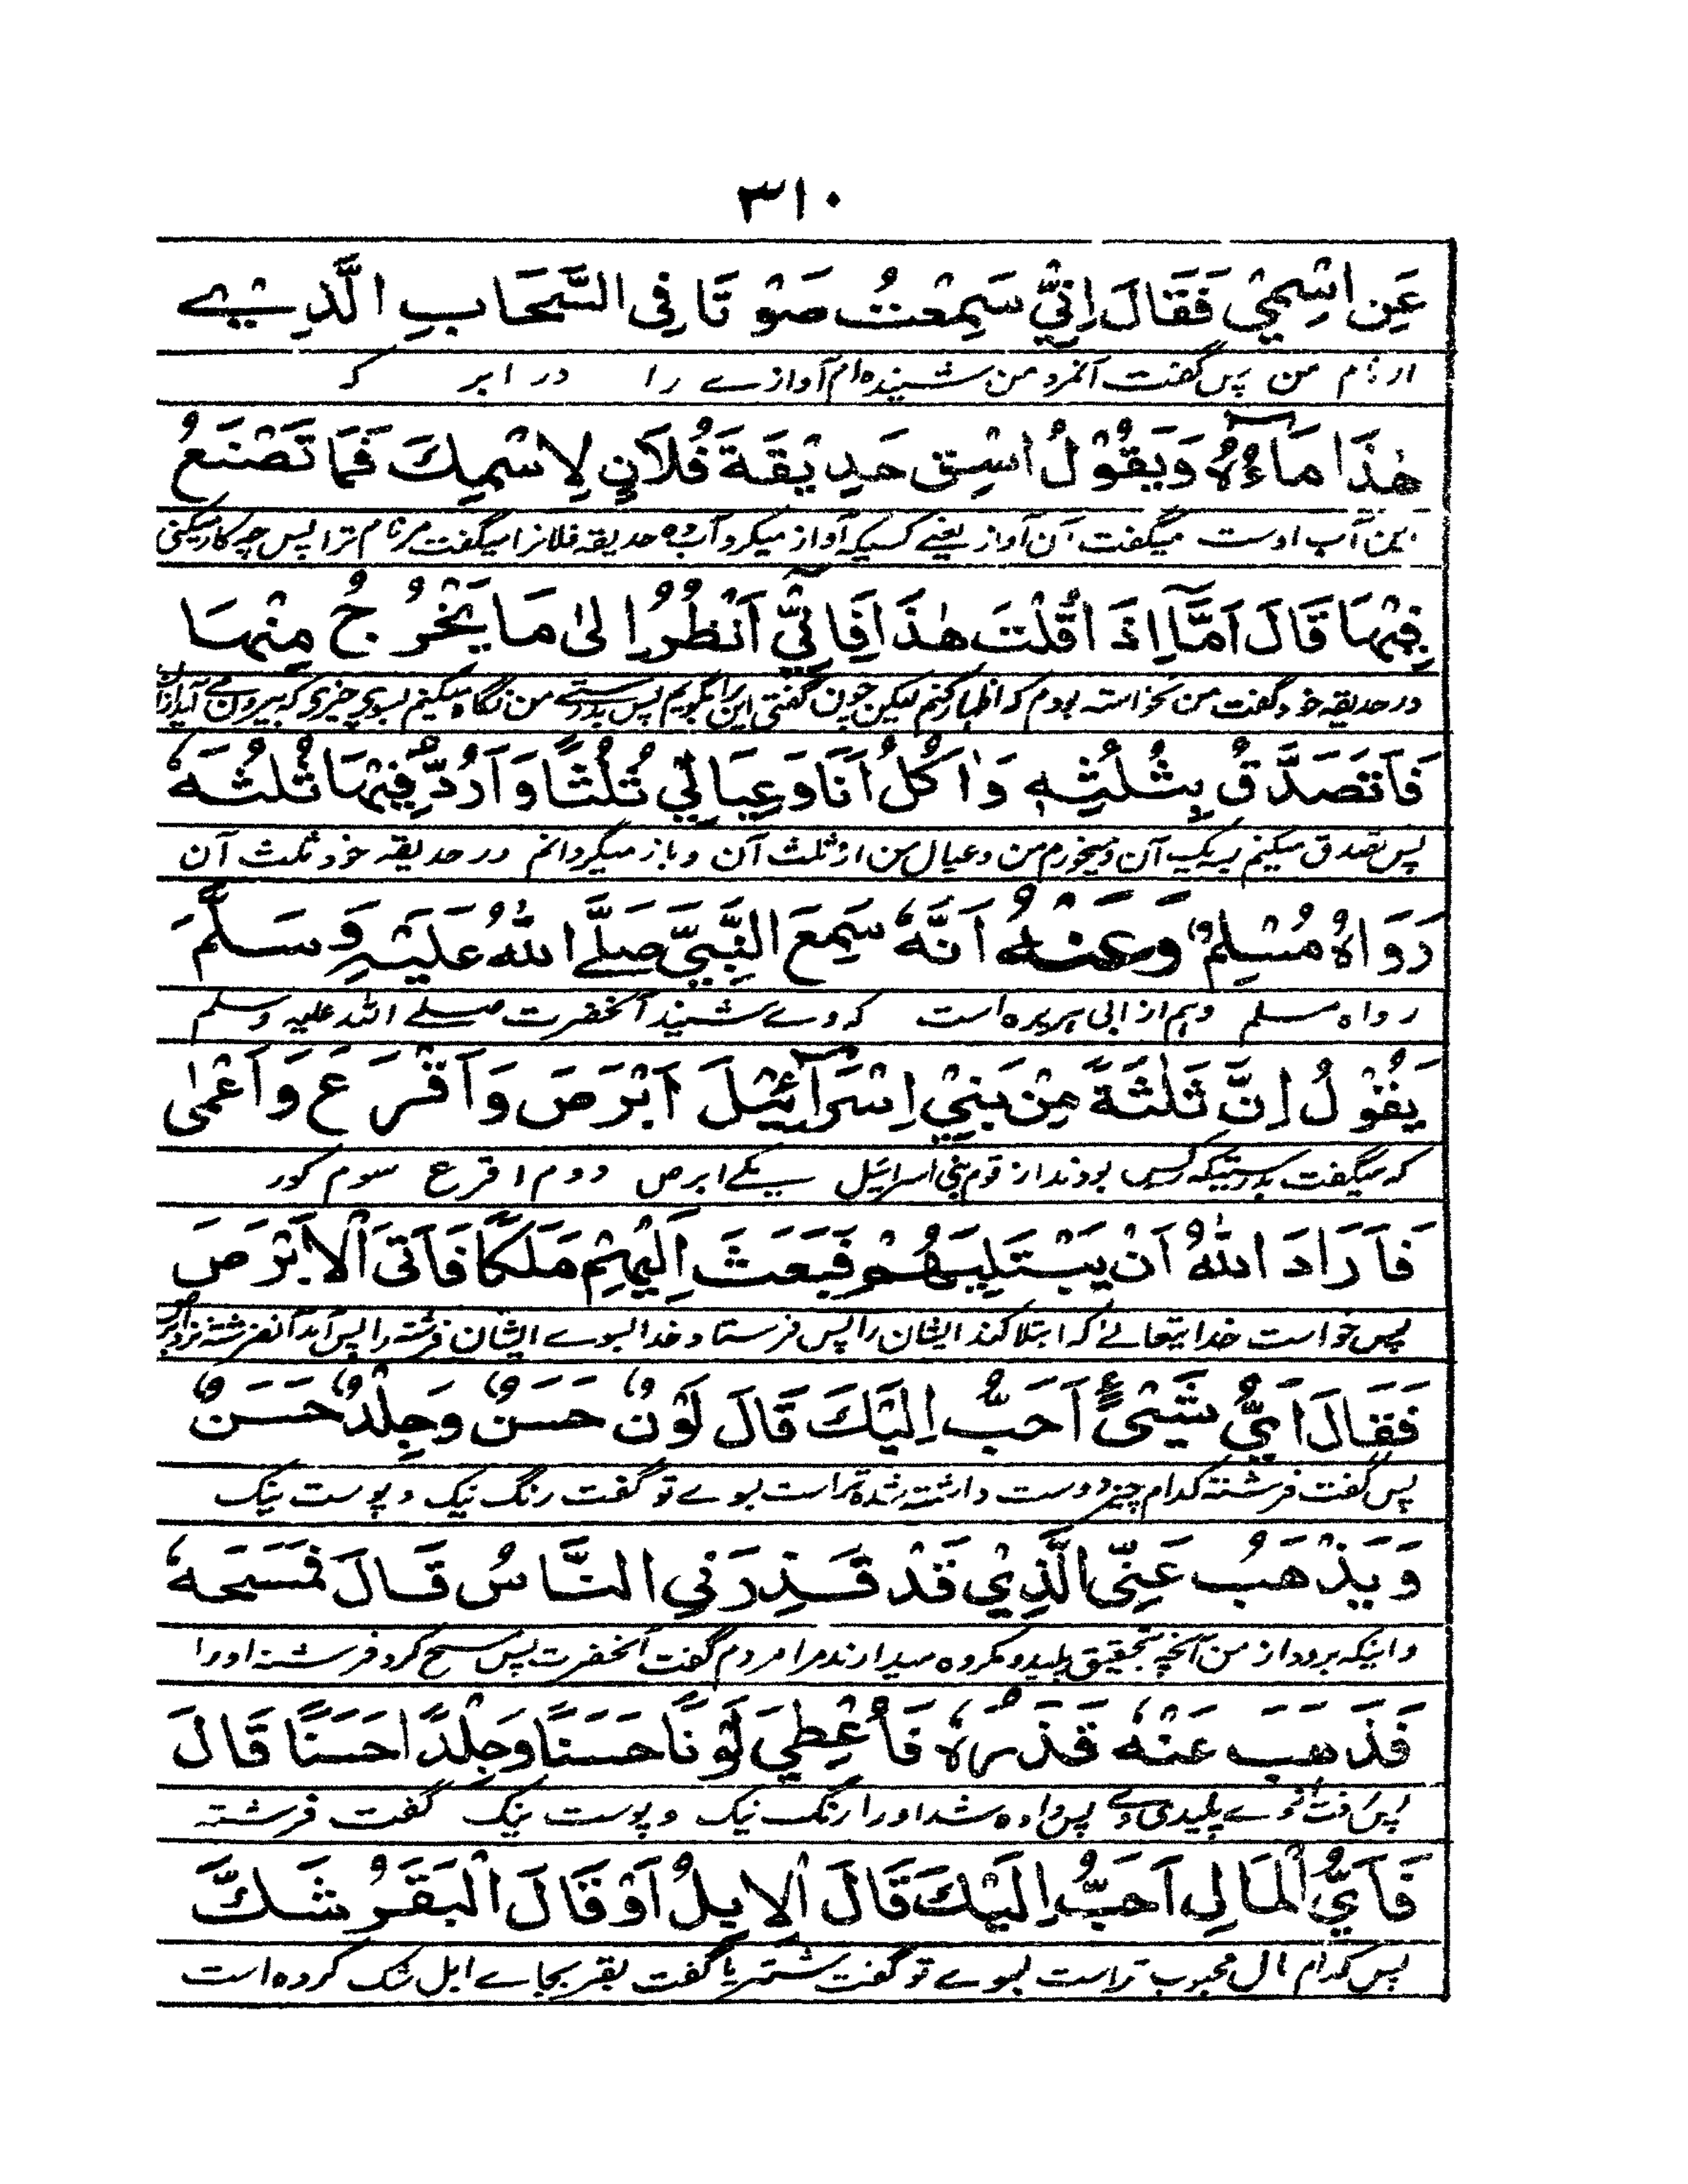 ٣١٠
عَنِ اسْمِيْ فَقَالَ اِنِّيْ سَمِعْتُ صَوْتًا فِي السَّحَابِ الَّذِيْ
از نام من پس گفت آنمرد من شنیده ام آوازے را در ابر که
هٰذَا مَاءُهُ وَيَقُوْلُ اسْقِ حَدِيْقَةَ فُلَانٍ لِاسْمِكَ فَمَا تَصْنَعُ
این آب اوست میگفت آن آواز یعنے کسیکه آواز میکرد آب ده حدیقه فلانرا میگفت مر نام ترا پس چه کار میکنی
فِيْهَا قَالَ اَمَّا اِذَا قُلْتَ هٰذَا فَاِنِّيْ اَنْظُرُ اِلٰى مَا يَخْرُجُ مِنْهَا
در حدیقه خود گفت من نخواسته بودم که اظهار کنم لیکن چون گفتی این را بگویم پس بدرستے من نگاه میکنم بسوی چیزی که بیرون مے آید از آن
فَاَتَصَدَّقُ بِثُلُثِهٖ وَاٰكُلُ اَنَا وَعِيَالِيْ ثُلُثًا وَاَرُدُّ فِيْهَا ثُلُثَهٗ
پس تصدق میکنم به یک آن و میخورم من و عیال من از ثلث آن و باز میگردانم در حدیقه خود ثلث آن
رَوَاهُ مُسْلِمٌ وَعَنْهُ اَنَّهٗ سَمِعَ النَّبِيَّ صَلَّے اللهُ عَلَيْهِ وَسَلَّمَ
رواه مسلم وهم از ابی هریره است که وے شنید آنحضرت صلے الله علیه وسلم
يَقُوْلُ اِنَّ ثَلٰثَةً مِنْ بَنِيْ اِسْرَآئِيْلَ اَبْرَصَ وَاَقْرَعَ وَاَعْمٰى
که میگفت بدرستیکه سه کس بودند از قوم بنی اسرائیل یکے ابرص دوم اقرع سوم کور
فَاَرَادَ اللهُ اَنْ يَبْتَلِيَهُمْ فَبَعَثَ اِلَيْهِمْ مَلَكًا فَاَتَى الْاَبْرَصَ
پس خواست خدایتعالے که ابتلا کند ایشان را پس فرستاد خدا بسوے ایشان فرشته را پس آمد آنفرشته نزد ابرص
فَقَالَ اَيُّ شَيْئٍ اَحَبُّ اِلَيْكَ قَالَ لَوْنٌ حَسَنٌ وَجِلْدٌ حَسَنٌ
پس گفت فرشته کدام چیز دوست داشته شده تر است بسوے تو گفت رنگ نیک و پوست نیک
وَيَذْهَبُ عَنِّى الَّذِيْ قَدْ قَذِرَنِي النَّاسُ قَالَ فَمَسَحَهٗ
و اینکه برود از من آنچه بتحقیق پلید و مکروه میدارند مرا مردم گفت آنحضرت پس مسح کرد فرشته او را
فَذَهَبَ عَنْهُ قَذَرُهٗ فَاُعْطِيَ لَوْنًا حَسَنًا وَجِلْدًا حَسَنًا قَالَ
پس رفت از وے پلیدی وے پس داده شد او را رنگ نیک و پوست نیک گفت فرشته
فَاَيُّ الْمَالِ اَحَبُّ اِلَيْكَ قَالَ الْاِبِلُ اَوْ قَالَ الْبَقَرُ شَكَّ
پس کدام مال محبوب تر است بسوے تو گفت شتر یا گفت بقر بجاے ابل شک کرده است